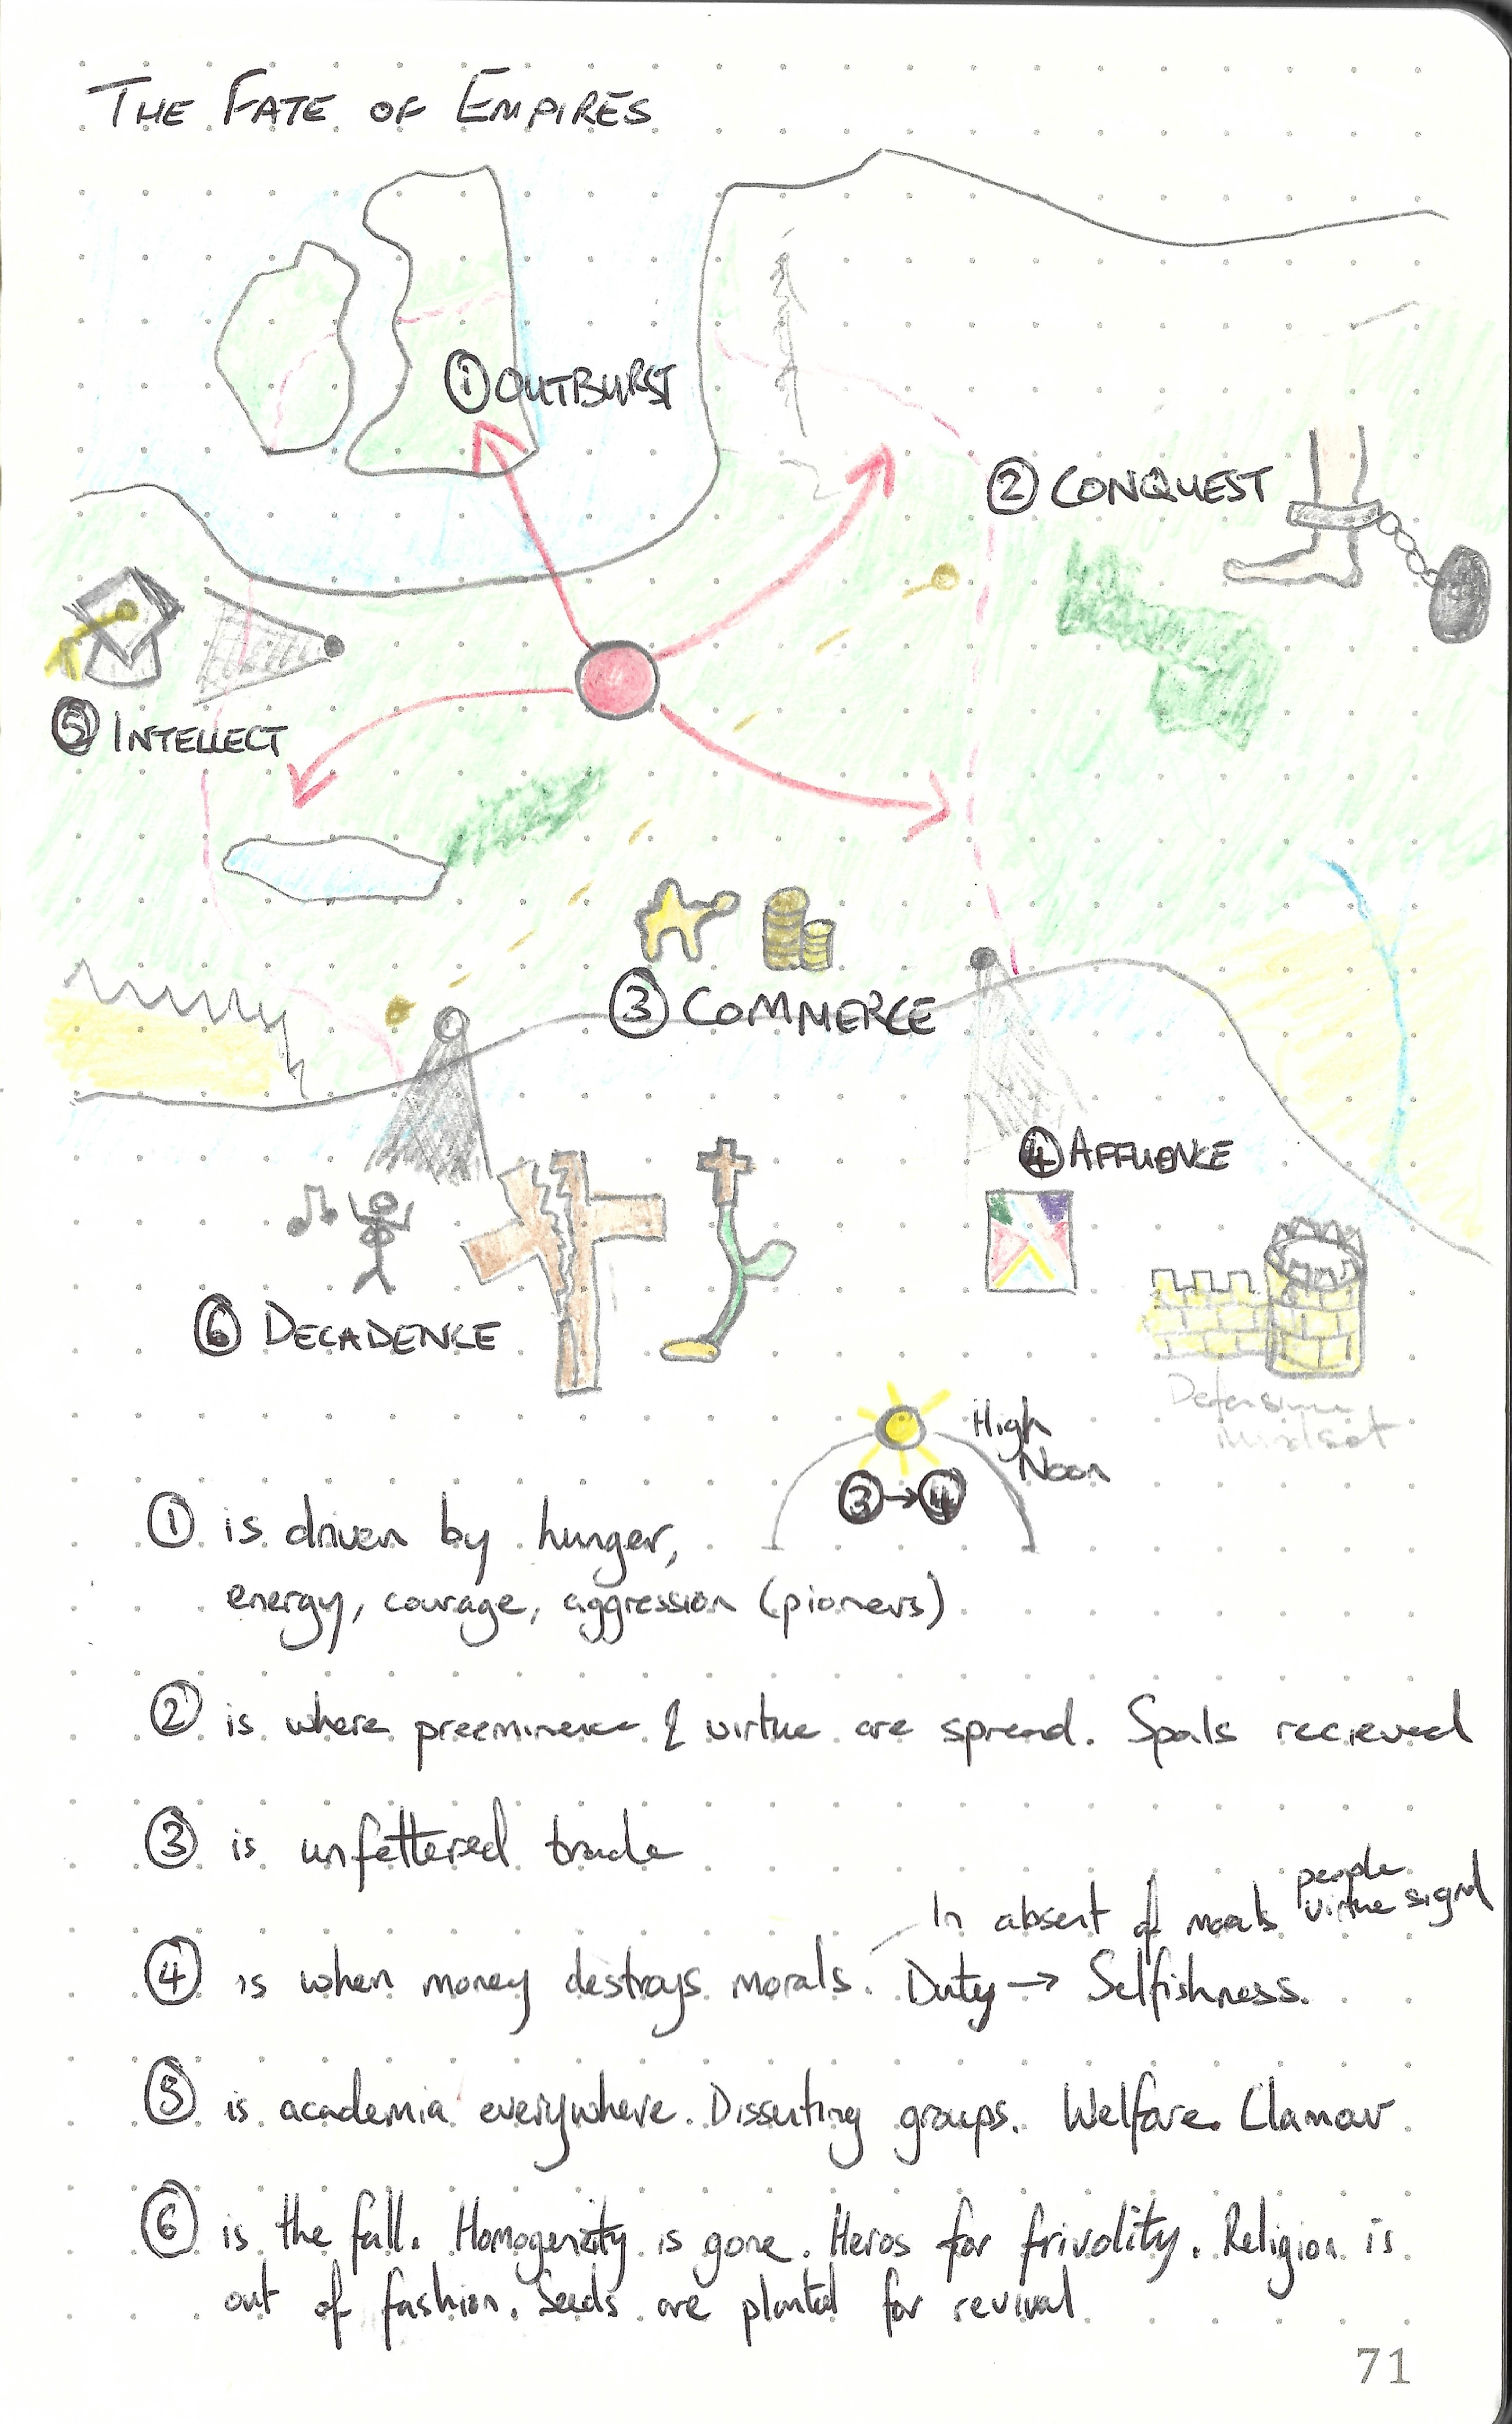 THE FATE OF EMPIRES
① OUTBURST
② CONQUEST
⑤ INTELLECT
③ COMMERCE
④ AFFLUENCE
⑥ DECADENCE
Defensive
Mindset
High
Noon
③→④
① is driven by hunger,
energy, courage, aggression (pioners)
② is where preeminence & virtue are spread. Spoils recieved
③ is unfettered trade
people
In absent of morals virtue signal
④ is when money destroys morals. Duty → Selfishness.
⑤ is academia everywhere. Dissenting groups. Welfare. Clamour
⑥ is the fall. Homogeneity is gone. Heros for frivolity. Religion is
out of fashion. Seeds are planted for revival
71